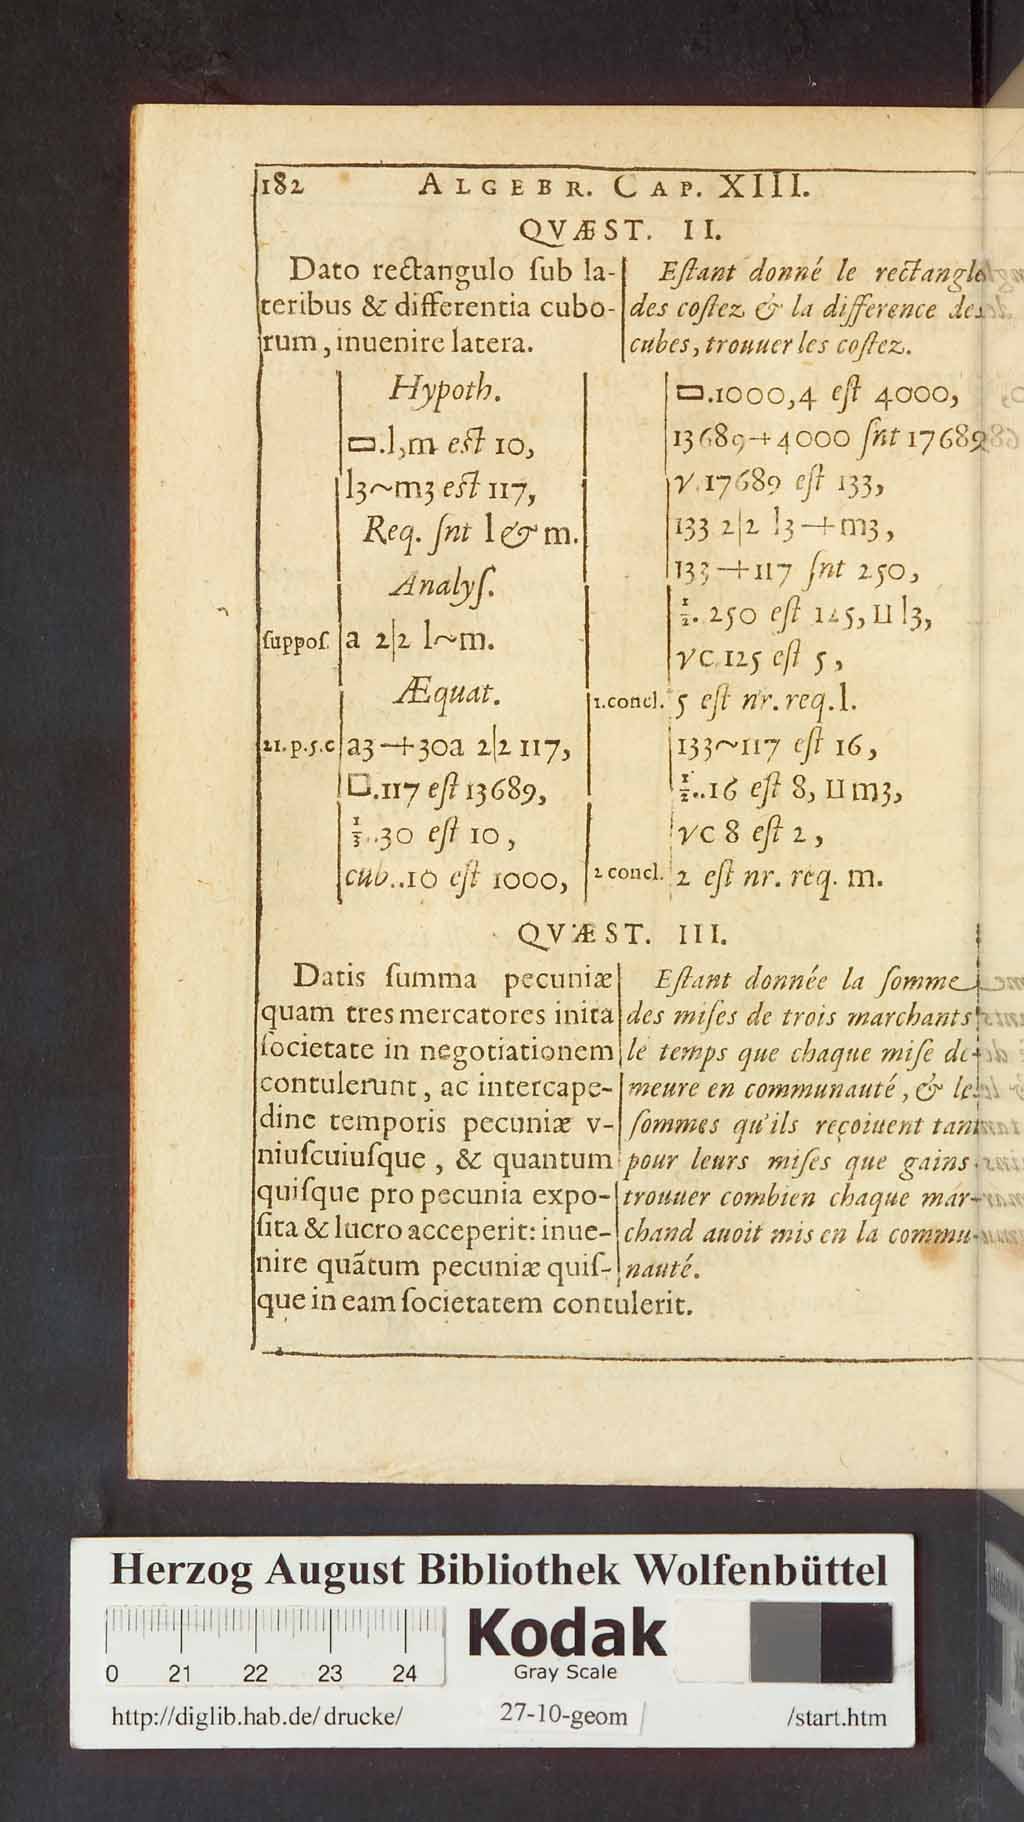 182 ALGEBR. CAP. XIII.
QVÆST. II.
Dato rectangulo ſub la-
teribus & differentia cubo-
rum, inuenire latera.
Eſtant donné le rectangle
des coſtez & la difference des
cubes, trouuer les coſtez.
Hypoth.
▭.l,m eſt 10,
l3~m3 eſt 117,
Req. ſnt l & m.
Analyſ.
ſuppoſ. a 2|2 l~m.
Æquat.
21.p.5.c a3+30a 2|2 117,
□.117 eſt 13689,
⅓..30 eſt 10,
cub..10 eſt 1000,
▭.1000,4 eſt 4000,
13689+4000 ſnt 17689
√.17689 eſt 133,
133 2|2 l3+m3,
133+117 ſnt 250,
½.250 eſt 125, ⊔ l3,
√C.125 eſt 5,
1.concl. 5 eſt nr. req. l.
133~117 eſt 16,
½..16 eſt 8, ⊔ m3,
√C 8 eſt 2,
2 concl. 2 eſt nr. req. m.
QVÆST. III.
Datis ſumma pecuniæ
quam tres mercatores inita
ſocietate in negotiationem
contulerunt, ac intercape-
dine temporis pecuniæ v-
niuſcuiuſque, & quantum
quiſque pro pecunia expo-
ſita & lucro acceperit: inue-
nire quãtum pecuniæ quiſ-
que in eam ſocietatem contulerit.
Eſtant donnée la ſomme
des miſes de trois marchants
le temps que chaque miſe de-
meure en communauté, & les
ſommes qu'ils reçoiuent tant
pour leurs miſes que gains
trouuer combien chaque mar-
chand auoit mis en la commu-
nauté.
Herzog August Bibliothek Wolfenbüttel
Kodak
Gray Scale
0 21 22 23 24
http://diglib.hab.de/drucke/ 27-10-geom /start.htm